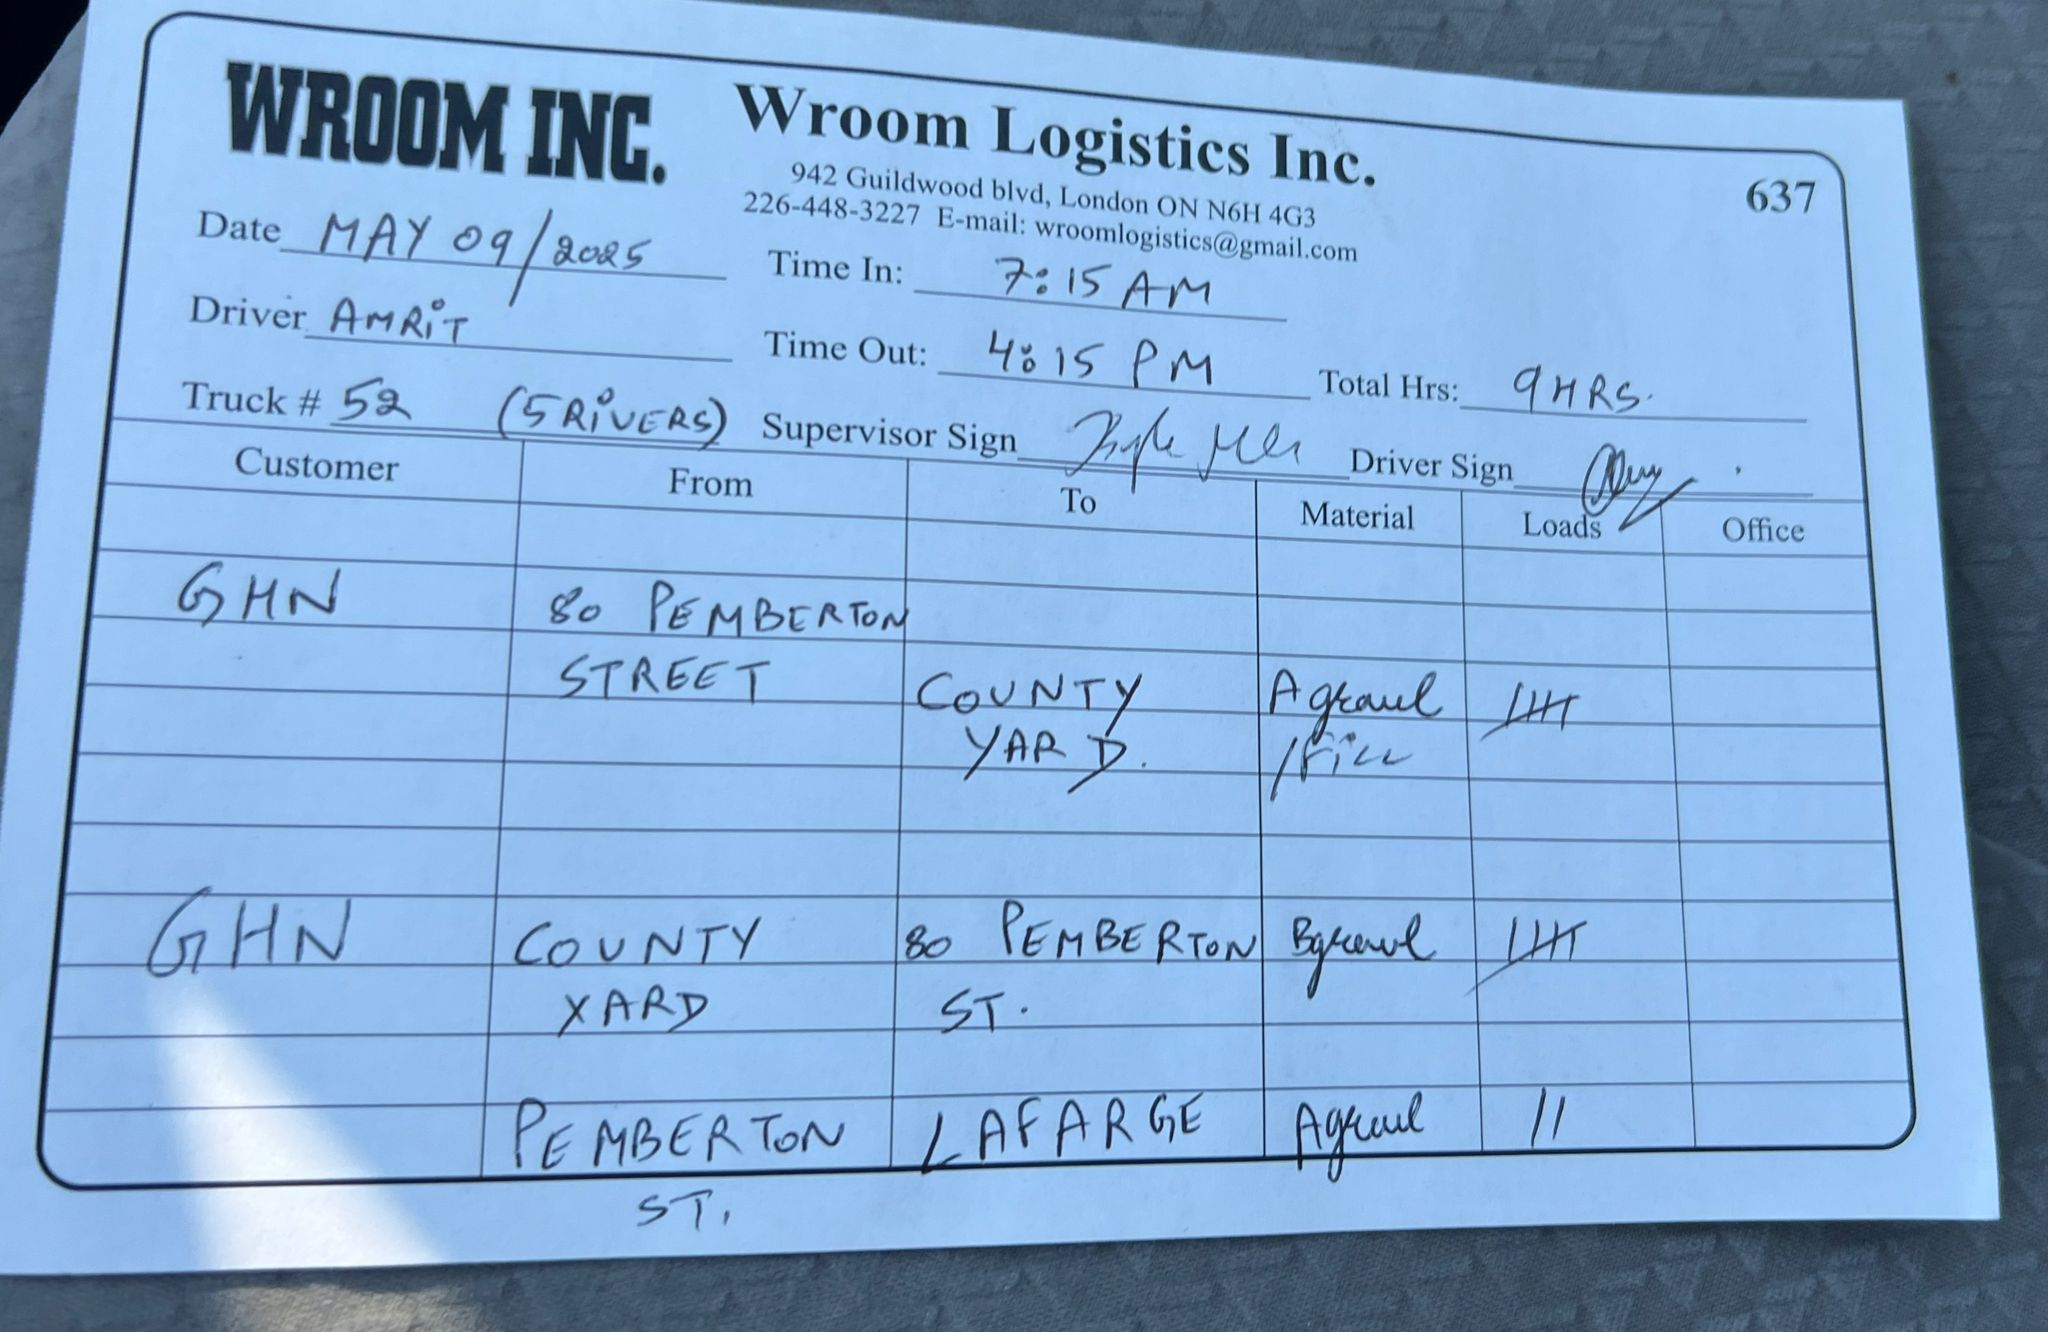 WROOM INC.
Wroom Logistics Inc.
637
942 Guildwood blvd, London ON N6H 4G3
226-448-3227 E-mail: wroomlogistics@gmail.com
Date MAY 09/2025
Time In: 7:15 AM
Driver AMRiT
Time Out: 4:15 PM
Total Hrs: 9 HRS.
Truck # 52 (5RiVERS)
Supervisor Sign
Driver Sign
Customer From To Material Loads Office
GHN 80 PEMBERTON
STREET COUNTY Agravel
YARD. /Fill
GHN COUNTY 80 PEMBERTON Bgravel
YARD ST.
PEMBERTON LAFARGE Agravel II
ST.